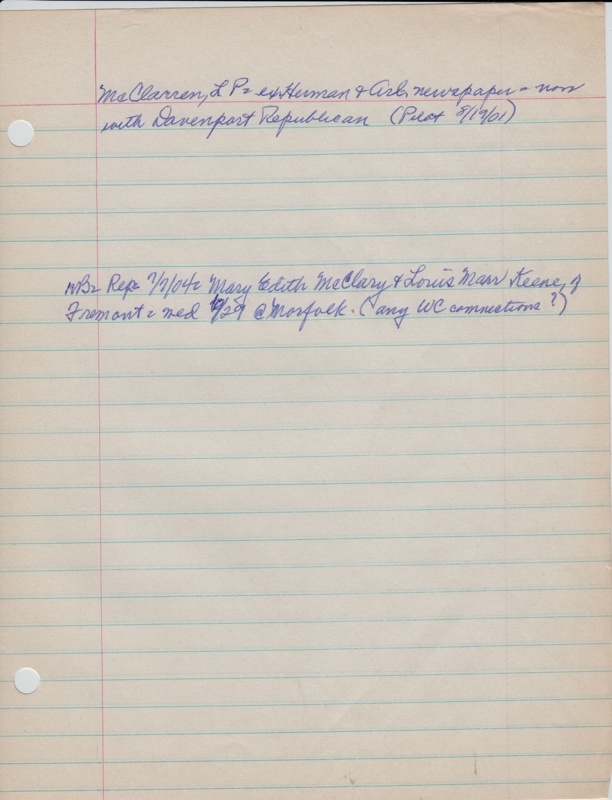 McClarren, L P = ex Herman & Arl. newspaper = now
with Davenport Republican (Pilot 8/19/01)
NB= Rep= 7/7/04= Mary Edith McClary & Louis Marr Keene, of
Fremont = wed 6/29 @ Norfolk. (any WC connections?)